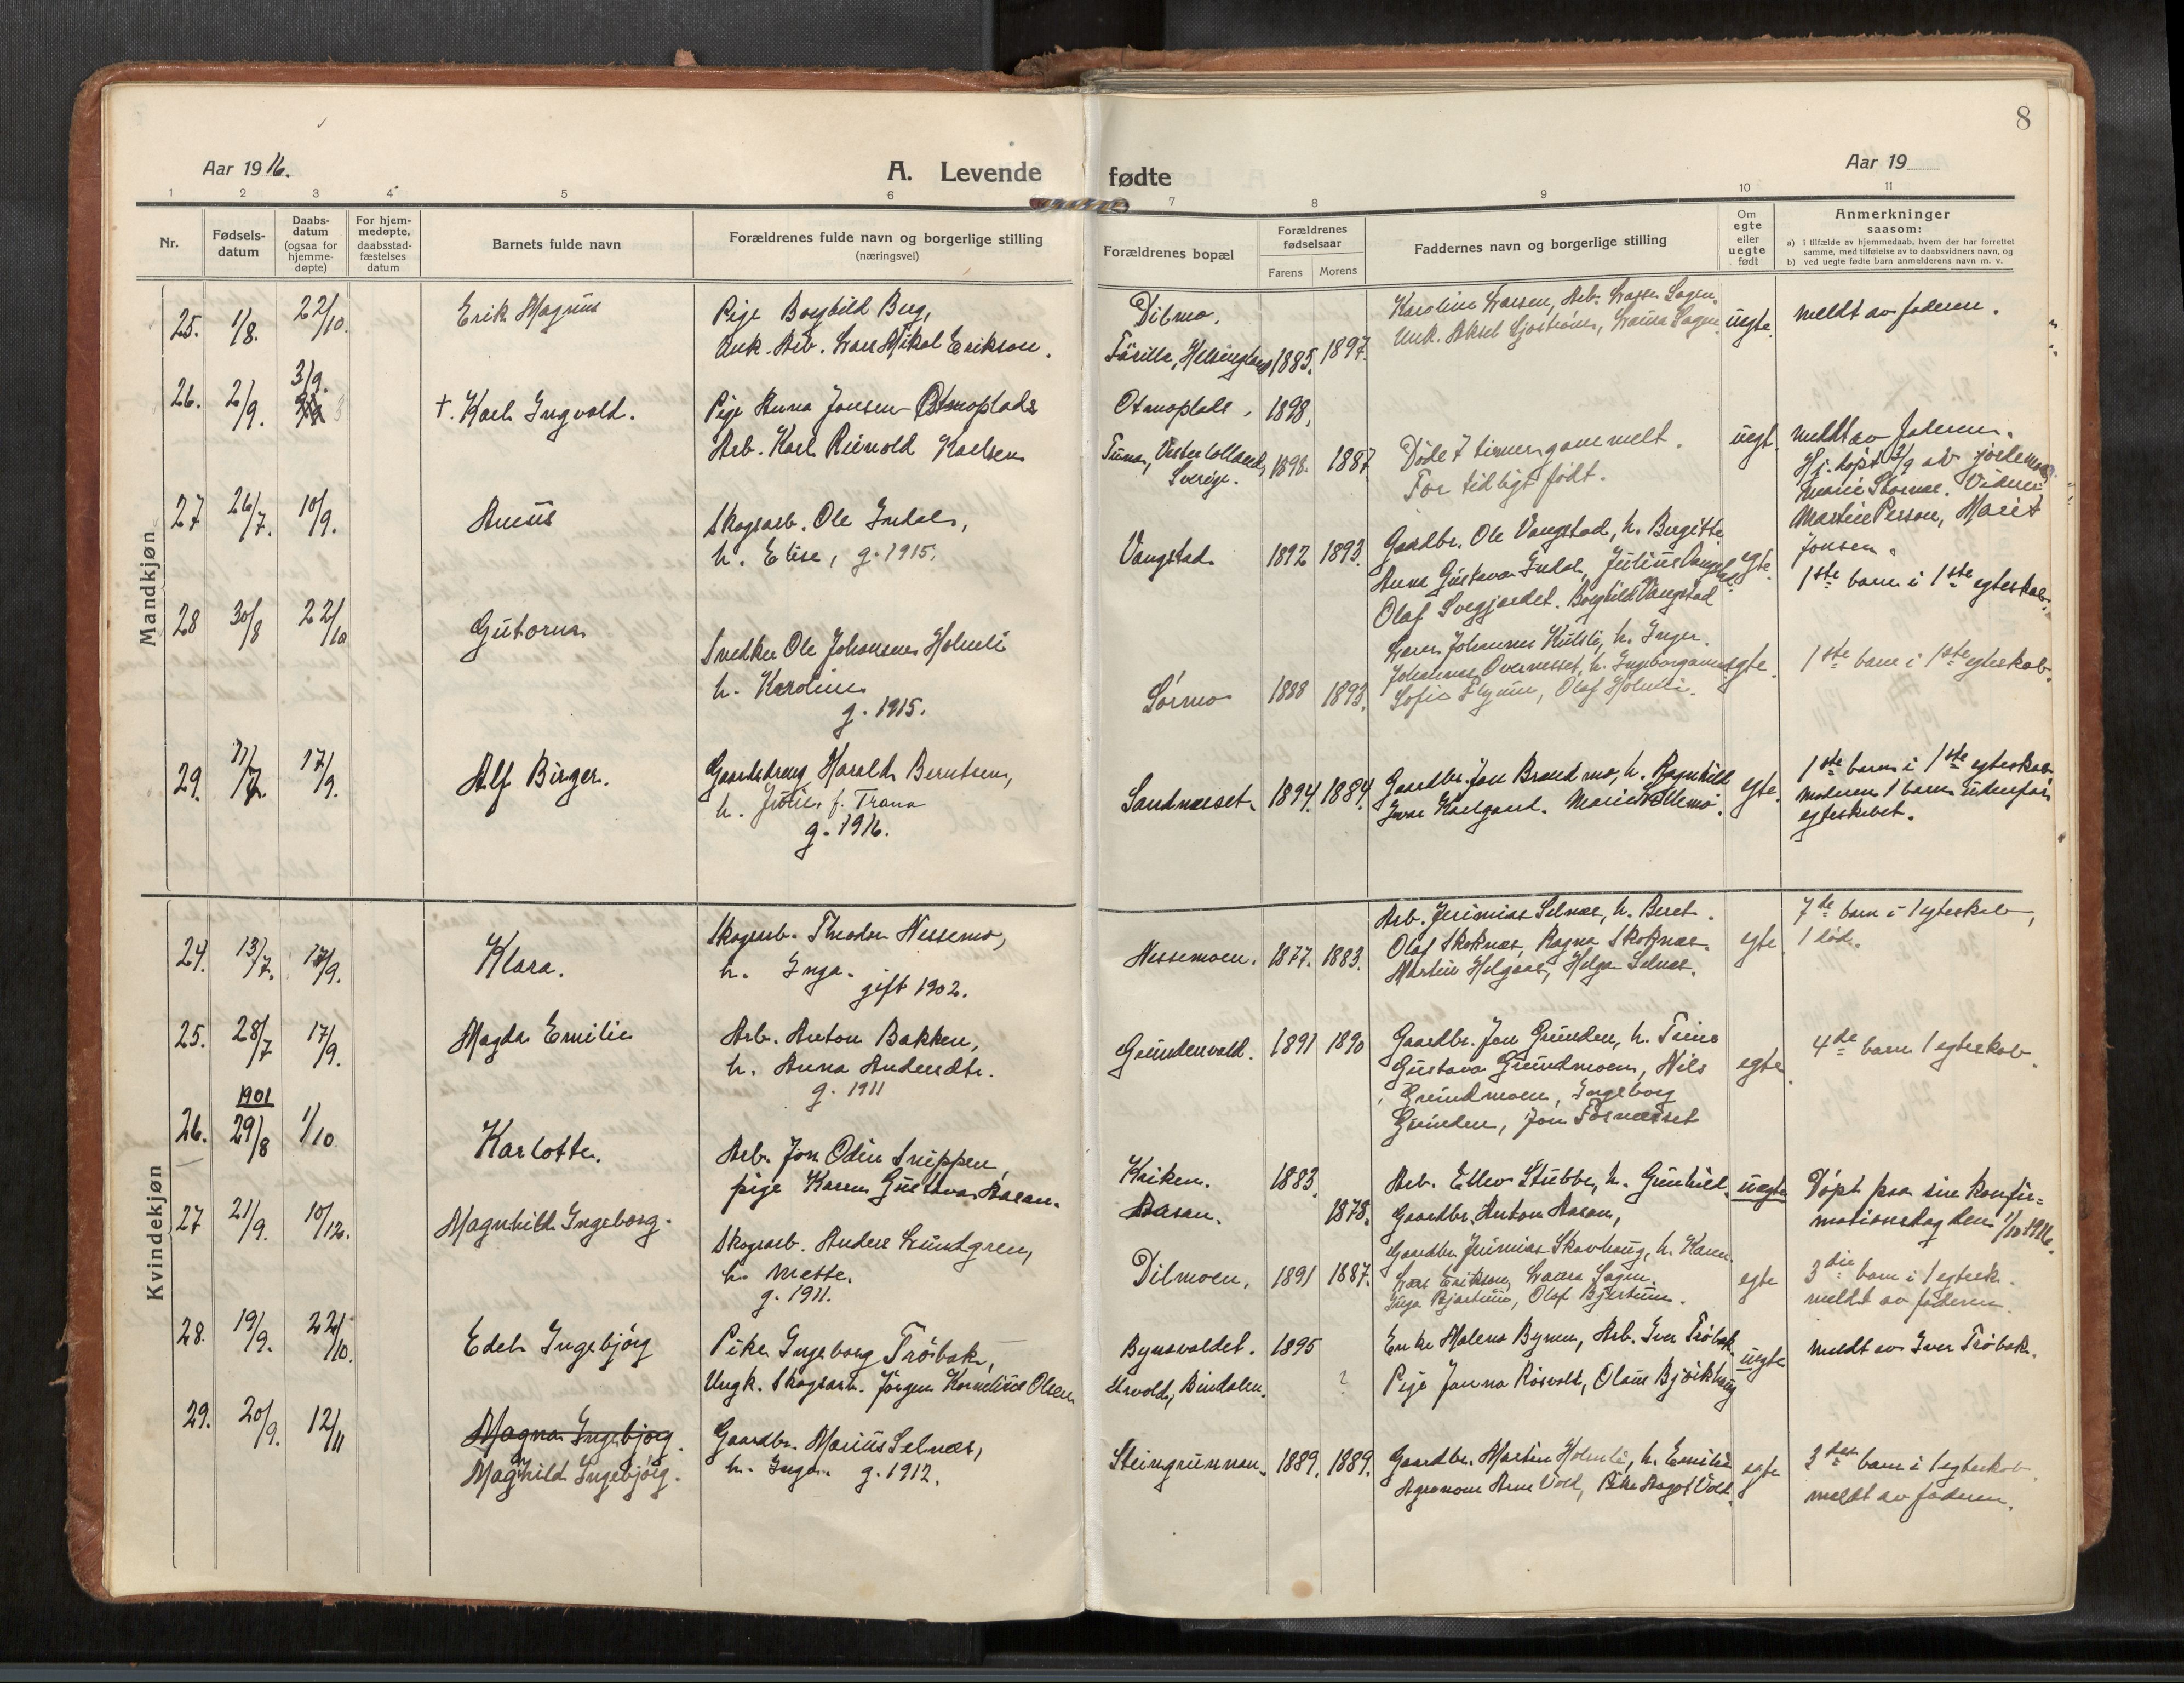 8
Aar 1916.
A. Levende fødte
Aar 19
1 2 3 4 5 6 7 8 9 10 11
Nr.
Fødsels-
datum
Daabs-
datum
(ogsaa for
hjemme-
døpte)
For hjem-
medøpte,
daabsstad-
fæstelses
datum
Barnets fulde navn
Forældrenes fulde navn og borgerlige stilling
(næringsvei)
Forældrenes bopæl
Forældrenes
fødselsaar
Farens Morens
Faddernes navn og borgerlige stilling
Om
egte
eller
uegte
født
Anmerkninger
saasom:
a) i tilfælde av hjemmedaab, hvem der har forrettet
samme, med tilføielse av to daabsvidners navn, og
b) ved uegte fødte barn anmelderens navn m. v.
Mandkjøn
25. 1/8. 22/10. Erik Magnus
Pige Borghild Berg,
Unk. Arb. Lars Mikal Erikson.
Dilmo.
Färilla, Helsingland 1885. 1897.
Karoline Larsen, Arb. Lasse Sagen.
Unk. Aksel Sjøstrøm, Laura Sagen
uegte. meldt av faderen.
26. 2/9. 3/9. †. Karl Ingvald.
Pige Anna Jonsen Otmoplads
Arb. Karl Reinold Karlsen
Otmoplads, 1898.
Tuna, Sverige. 1898. 1887
Døde 7 timer gammelt.
For tidligt født.
uegt. meldt av faderen.
Hj. døpt 3/9 av jordemor
Marie Stornæs. Vidner
Martin Person, Marit
Jonsen.
27 26/7. 10/9. Anius
Skogsarb. Ole Indal,
h. Elise, g. 1915.
Vangstad 1892 1893.
Gaardbr. Ole Vangstad, h. Bergitte
Anna Gustava Indal, Julius Vangstad
Olaf Svegjordet. Borghild Vangstad
egte. 1ste barn i 1ste egteskab.
28 30/8 22/10 Gutorm
Snedker Ole Johansen Holmli
h. Karoline
g. 1915.
Sørmo 1888 1893.
Lars Johannes Kulsli, h. Inger.
Johannes Overnesset, h. Ingeborganna
Sofie Flynum, Olaf Holmli.
egte. 1ste barn i 1ste egteskab.
29. 11/7. 17/9. Alf Birger.
Gaardsdreng Harald Berntsen,
h. Julie f. Trana
g. 1916.
Sandnæset. 1894. 1884.
Gaardbr. Jon Brandmo, h. Ragnhild
Ivar Kalgaard. Marie Sellemo.
egte. 1ste barn i 1ste egteskab
moderen 1 barn udenfor
egteskabet.
Kvindekjøn
24. 13/7. 17/9. Klara.
Skogsarb. Theodor Nessemo,
h. Inga.
gift 1902.
Nessemoen. 1877. 1883.
Arb. Jerimias Selnæs, h. Beret.
Olaf Skoknæs, Ragna Skoknæs.
Martin Helgaas, Helga Selnæs.
egte 7de barn i 1 egteskab,
1 død.
25. 28/7 17/9. Magda Emilie
Arb. Anton Bakken,
h. Anna Andersdtr.
g. 1911
Grundenvald. 1891 1890
Gaardbr. Jon Grunden, h. Trine
Gustava Grundmoen, Nils
Grundmoen, Ingeborg
Grunden, Jon Fornæsset
egte. 4de barn 1 egteskab.
26. 1901 29/8 1/10 Karlotte.
Arb. Jon Odin Snippen,
pige Karen Gustava Aasan.
Kriken. 1883.
Aasan. 1878.
Arb. Ellev Stubbe, h. Gunhild.
Gaardbr. Anton Aasan,
uegte Døpt paa sin konfir-
mationsdag den 1/10 1916.
27 21/9. 10/12. Magnhild Ingeborg.
Skogsarb. Anders Lundgren,
h. Mette.
g. 1911.
Dilmoen, 1891 1887.
Gaardbr. Jerimias Skavhaug, h. Karen
Lars Erikson, Laura Sagen.
Inga Bjartnun, Olaf Bjartnun.
egte 3die barn i 1 egtesk.
meldt av faderen.
28. 19/9. 22/10. Edel Ingebjørg
Pike Ingeborg Trøbak,
Ungk. Skogsarb. Jørgen Kornelius Olsen
Bynavoldet. 1895
Urvold, Bindalen. ?
Enke Malena Bynen, Arb. Iver Trøbak
Pige Janna Rosvold, Olaus Bjørkhaug
uegte meldt av Iver Trøbak.
29. 20/9. 12/11 Magna Ingebjørg.
Magnhild Ingebjørg.
Gaardbr. Marius Selnæs,
h. Inga. g. 1912.
Steingrunnan. 1889. 1889.
Gaardbr. Martin Holmli, h. Emilie
Agronom Arne Vold, Pike Aagot Vold
egte 3die barn i 1 egteskab.
meldt av faderen.